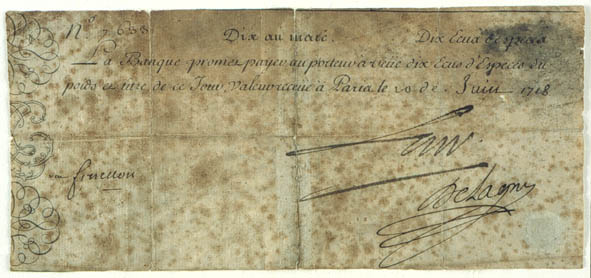 N.º 7633 Dix au marc. Dix Ecus d'Especes
La Banque promet payer au porteur à vüe dix Ecus d'Especes du
poids et titre de ce Jour, Valeur recüe à Paris le 20 de Juin 1718
Law.
vu fenellon
De Lagny